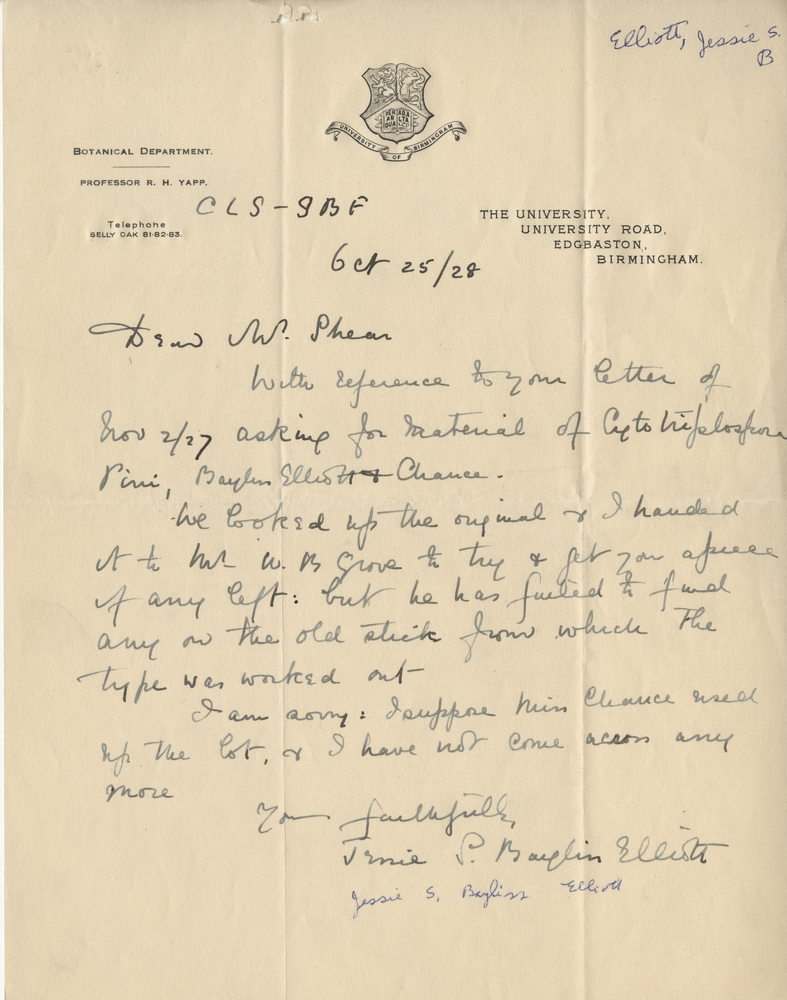 Elliott, Jessie S.
B
PER AD
AR DUA
ALTA
UNIVERSITY OF BIRMINGHAM
BOTANICAL DEPARTMENT.
PROFESSOR R. H. YAPP.
CLS-SBF
Telephone
SELLY OAK 81-82-83.
THE UNIVERSITY,
UNIVERSITY ROAD,
EDGBASTON,
BIRMINGHAM.
Oct 25/28
Dear Mr. Shear
With reference to your letter of
Nov 2/27 asking for material of Cytotriplospora
Pini, Bayliss Elliott & Chance.
We looked up the original & I handed
it to Mr W. B Grove to try & get you a piece
if any left: but he has failed to find
any on the old stick from which the
type was worked out
I am sorry: I suppose Miss Chance used
up the lot, & I have not come across any
more
Yours faithfully,
Jessie S. Bayliss Elliott
Jessie S, Bayliss Elliott